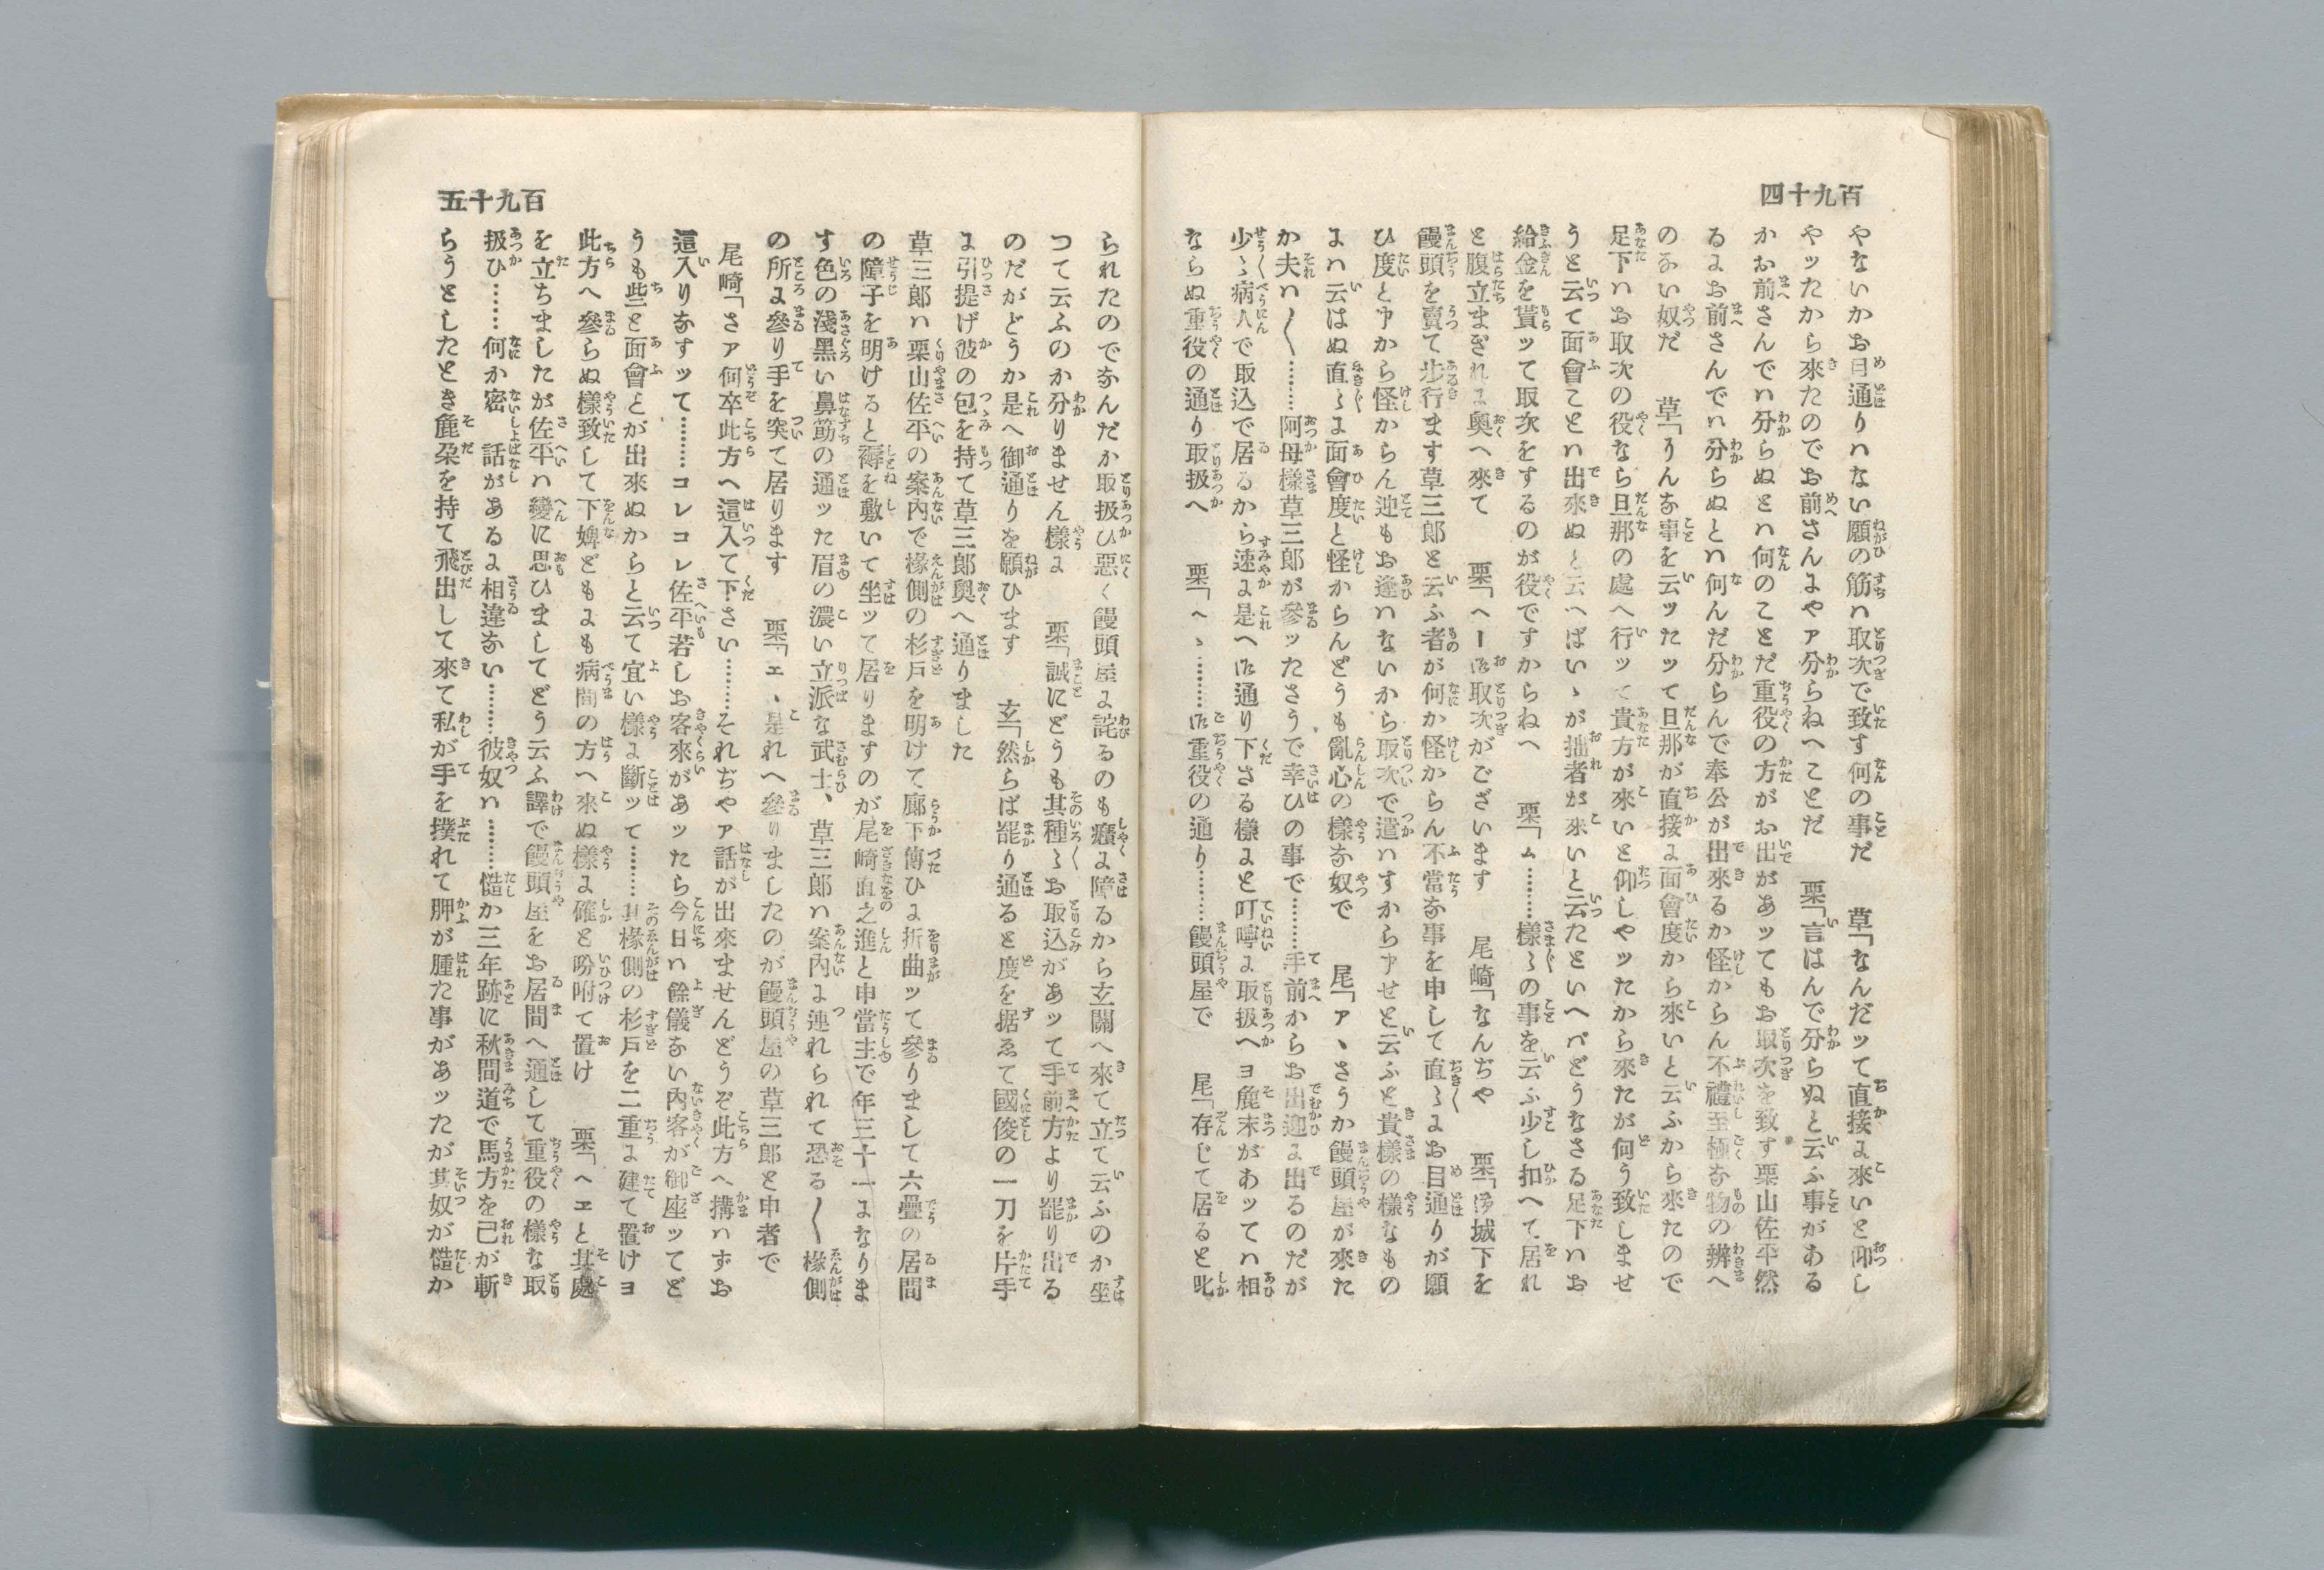 百九十四
やないかお目通りハない願の筋ハ取次で致す何の事だ　草「なんだッて直接に來いと仰し
やッたから來たのでお前さんにやァ分らねへことだ　栗「言はんで分らぬと云ふ事がある
かお前さんでハ分らぬとハ何のことだ重役の方がお出があッてもお取次を致す栗山佐平然
るにお前さんでハ分らぬとハ何んだ分らんで奉公が出來るか怪しからん不禮至極な物の辨へ
のない奴だ　草「そんな事を云ッたッて旦那が直接に面會度から來いと云ふから來たので
足下ハお取次の役なら旦那の處へ行ッて貴方が來いと仰しやッたから來たが何う致しませ
うと云て面會ことハ出來ぬと云へばいゝが拙者が來いと云たといへバどうなさる足下ハお
給金を貰ッて取次をするのが役ですからねへ　栗「ム………樣〻の事を云ふ少し扣へて居れ
と腹立まぎれに奧へ來て　栗「ヘー御取次がございます　尾崎「なんぢや　栗「御城下を
饅頭を賣て步行ます草三郎と云ふ者が何か怪しからん不當な事を申して直〻にお目通りが願
ひ度と申から怪しからん迚もお逢ハないから取次で遣ハすから申せと云ふと貴樣の樣なもの
にハ云はぬ直〻に面會度と怪しからんどうも亂心の樣な奴で　尾「ァヽさうか饅頭屋が來た
か夫ハ〱………阿母樣草三郎が參ッたさうで幸ひの事で………手前からお出迎に出るのだが
少〻病人で取込で居るから速に是へ御通り下さる樣にと叮嚀に取扱へヨ麁末があッてハ相
ならぬ重役の通り取扱へ　栗「へゝ………御重役の通り………饅頭屋で　尾「存じて居ると叱
百九十五
られたのでなんだか取扱ひ惡く饅頭屋に詫るのも癪に障るから玄關へ來て立て云ふのか坐
つて云ふのか分りません樣に　栗「誠にどうも其種〻お取込があッて手前方より罷り出る
のだがどうか是へ御通りを願ひます　玄「然らば罷り通ると度を据ゑて國俊の一刀を片手
に引提げ彼の包を持て草三郎奧へ通りました
草三郎ハ栗山佐平の案內で椽側の杉戶を明けて廊下傳ひに折曲ッて參りまして六疊の居間
の障子を明けると褥を敷いて坐ッて居りますのが尾崎直之進と申當主で年三十一になりま
す色の淺黑い鼻筋の通ッた眉の濃い立派な武士、草三郎ハ案內に連れられて恐る〱椽側
の所に參り手を突て居ります　栗「エヽ是れへ參りましたのが饅頭屋の草三郎と申者で
尾崎「さァ何卒此方へ這入て下さい………それぢやァ話が出來ませんどうぞ此方へ搆ハずお
這入りなすッて………コレコレ佐平若しお客來があッたら今日ハ餘儀ない內客が御座ッてど
うも些と面會とが出來ぬからと云て宜い樣に斷ッて………其椽側の杉戶を二重に建て置けヨ
此方へ參らぬ樣致して下婢どもにも病間の方へ來ぬ樣に確と吩咐て置け　栗「ヘエと其處
を立ちましたが佐平ハ變に思ひましてどう云ふ譯で饅頭屋をお居間へ通して重役の樣な取
扱ひ……何か密話があるに相違ない………彼奴ハ………慥か三年跡に秋間道で馬方を己が斬
らうとしたとき麁朶を持て飛出して來て私が手を撲れて胛が腫た事があッたが其奴が慥か